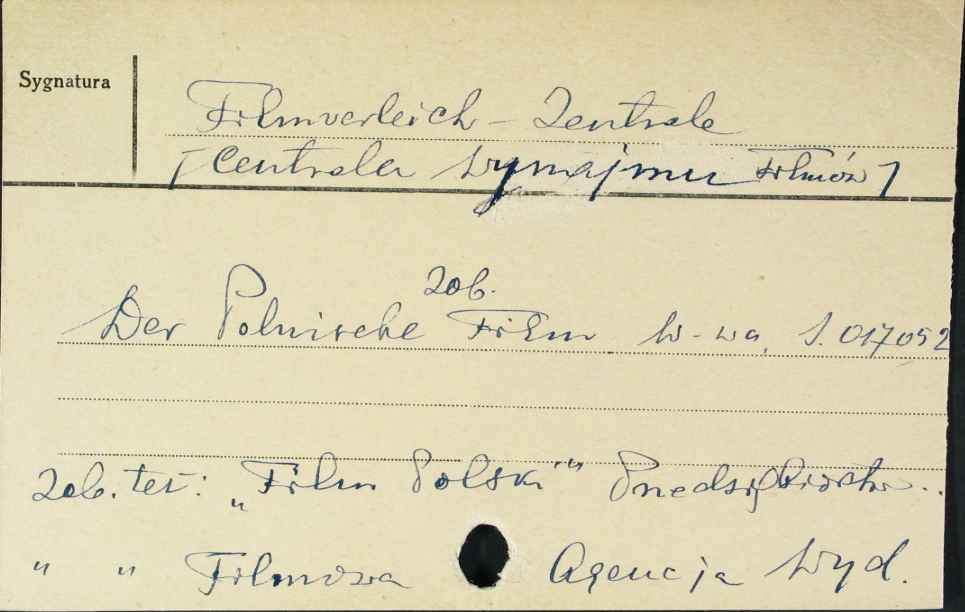 Sygnatura
Filmverleich - Zentrale
[Centrala Wynajmu Filmów]
zob.
Der Polnische Film W-wa, S. 017052
zob. też: „Film Polski" Przedsiębiorstw..
" " Filmowa Agencja Wyd.